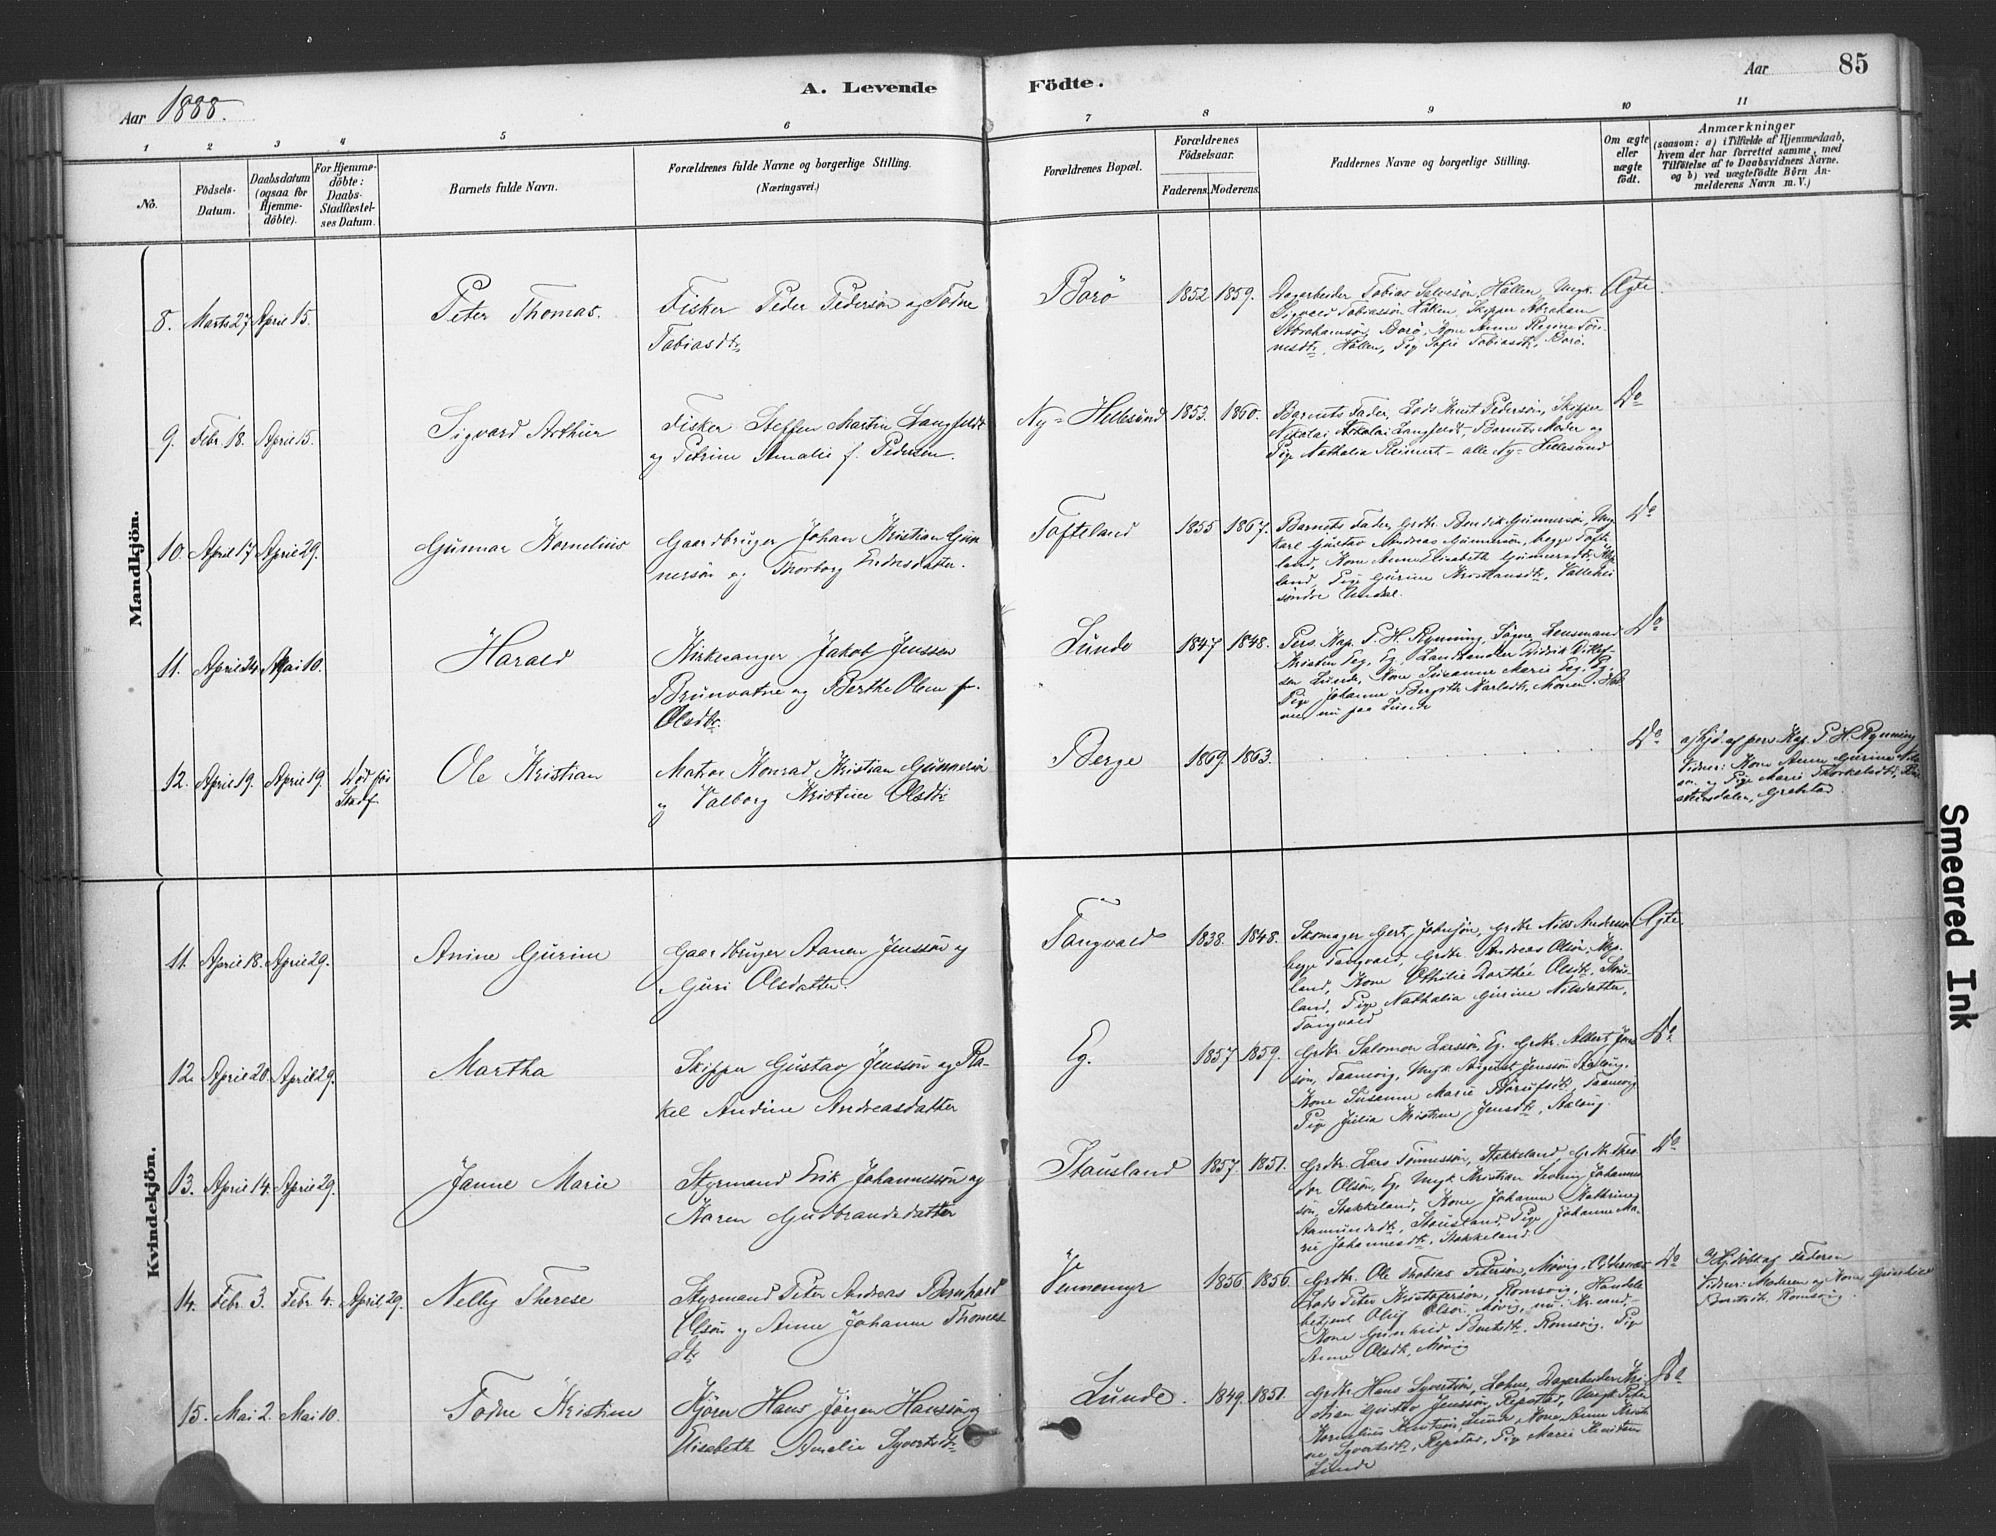 Aar 1888.
A. Levende Födte.
Aar
85
1 2 3 4 5 6 7 8 9 10 11
No.
Födsels-Datum.
Daabsdatum (ogsaa for Hjemme-döbte).
For Hjemme-döbte: Daabs-Stadfæstel-ses Datum.
Barnets fulde Navn.
Forældrenes fulde Navne og borgerlige Stilling.
(Næringsvei.)
Forældrenes Bopæl.
Forældrenes Födselsaar.
Faderens. Moderens.
Faddernes Navne og borgerlige Stilling.
Om ægte eller uægte födt.
Anmærkninger
(saasom: a) i Tilfælde af Hjemmedaab,
hvem der har forrettet samme, med
Tilföielse af to Daabsvidners Navne.
og b) ved uægtefödte Börn An-
melderens Navn m. V.)
Mandkjön.
8. Marts 27 April 15. Peter Thomas. Fisker Peder Pedersön og Todne
Tobiasdtr
Borö 1852 1859. Dagarbeider Tobias Salvesön, Hallen, Ungk. Ægte
Sigvald Tobiassön, Skipper Abraham
Abrahamsön, Borö, Kone Anne Tön-
nesdtr, Hallen, Pige Sofie Tobiasdtr, Borö.
9. Febr. 18. April 15. Sigvard Arthur Fisker Steffen Martin Langfeldt
og Petrine Amalie f. Pedersen.
Ny-Hellesund 1853. 1860. Barnets Fader, Lods Knut Pedersön, Skipper Do
Nikolai Langfeldt, Barnets Moder og
Pige Nathalia Reinert - alle Ny-Hellesund
10. April 17 April 29. Gunnar Kornelius Gaardbruger Johan Kristian Gun
nersön og Thorborg Endresdatter.
Tofteland 1855 1867. Barnets Fader, Grdbr. Bendik Gunnersön, Ung
karl Gustav Andreas Gunnersön, begge Tofte-
land, Kone Anne Elisabeth Gunnersdtr,
land, Pige Gurine Kristiansdtr,
söndre Undal. Do
11. April 24 Mai 10. Harald Kirkesanger Jakob Jenssen
Brunvatne og Berthe Oline f.
Olsdtr
Lunde 1847 1848. Pers. Kap. T. H. Rynning, Sögne, Lensmand Do
Kristen Eeg, Eg, Landhandler Didrik Ditlef-
sen Lunde, Kone Susanne Marie Eeg, Eg,
Pige Johanne Karlsdtr,
nu paa Lunde
12. April 19. April 19. Död för
Stadf.
Ole Kristian Matros Konrad Kristian Gunnersön
og Valborg Kristine Olsdtr
Berge 1869. 1863. Do a) Hjd. af pers. Kap. T. H. Rynning
Vidner: Kone Anne Gurine
og Pige Marie Thorkelsdtr,
Kvindekjön.
11. April 18. April 29. Anine Gurine Gaardbruger Aanen Jenssön og
Guri Olsdatter.
Tangvald 1838. 1848. Skomager Gert Johnsön, Grdbr Nils Anderson Ægte.
begge Tangvald, Grdbr. Andreas Olsön,
land, Kone Othilie Dorthée Olsdtr, Staus-
land, Pige Nathalia Gurine Nilsdatter,
Tangvald
12. April 20. April 29. Martha Skipper Gustav Jenssön og Ra-
kel Andine Andreasdatter
Eg. 1857 1859. Grdbr. Salomon Larssön, Eg. Grdbr. Albert Jens Do
sön, Taanevig, Ungk. August Jenssön
Kone Susanne Marie Taanevig
Pige Julia Kristine Jensdtr,
13. April 14. April 29. Janne Marie Styrmand Erik Johannessön og
Karen Gudbrandsdatter
Stausland 1857. 1851. Grdbr. Lars Tönnessön, Stokkeland, Grdbr. Theo Do
dor Olsön, Eg. Ungk. Kristian Johannes
sön, Stokkeland, Kone Johanne Kathrine
Aamundsdtr, Stausland, Pige Johanne Ma-
rie Johannesdtr, Stokkeland
14. Febr. 3. Febr 4. April 29. Nelly Therese Styrmand Peter Andreas Bernhard
Olsön og Anne Johanne Thomas
dtr
Vennemyr 1856 1856. Grdbr. Ole Thobias Petersön, Növig, Do
Lods Peter Kristofersön, Romsvig, Handels
betjent Oluf Olsön, Növig, nu: Kr.sand,
Kone Gunhild Romsvig. Pige
Anne Olsdtr, Növig
a) Hj. döbt af Faderen
Vidner: Moderen og Kone Gunhild
Romsvig.
15. Mai 2. Mai 10. Todne Kristine Kjörer Hans Jörgen Hanssön og
Elisabeth Amalie Syvertsdtr
Lunde. 1849. 1851. Grdbr. Hans Syvertsön, Lohne, Dagarbeider Kri- Do
stian Gustav Jenssön, Repstad, Ungk. Peter
Kornelius Lunde, Kone Anne Kristi
ne Syvertsdtr, Repstad, Pige Marie Knutsen
Lunde
Smeared Ink